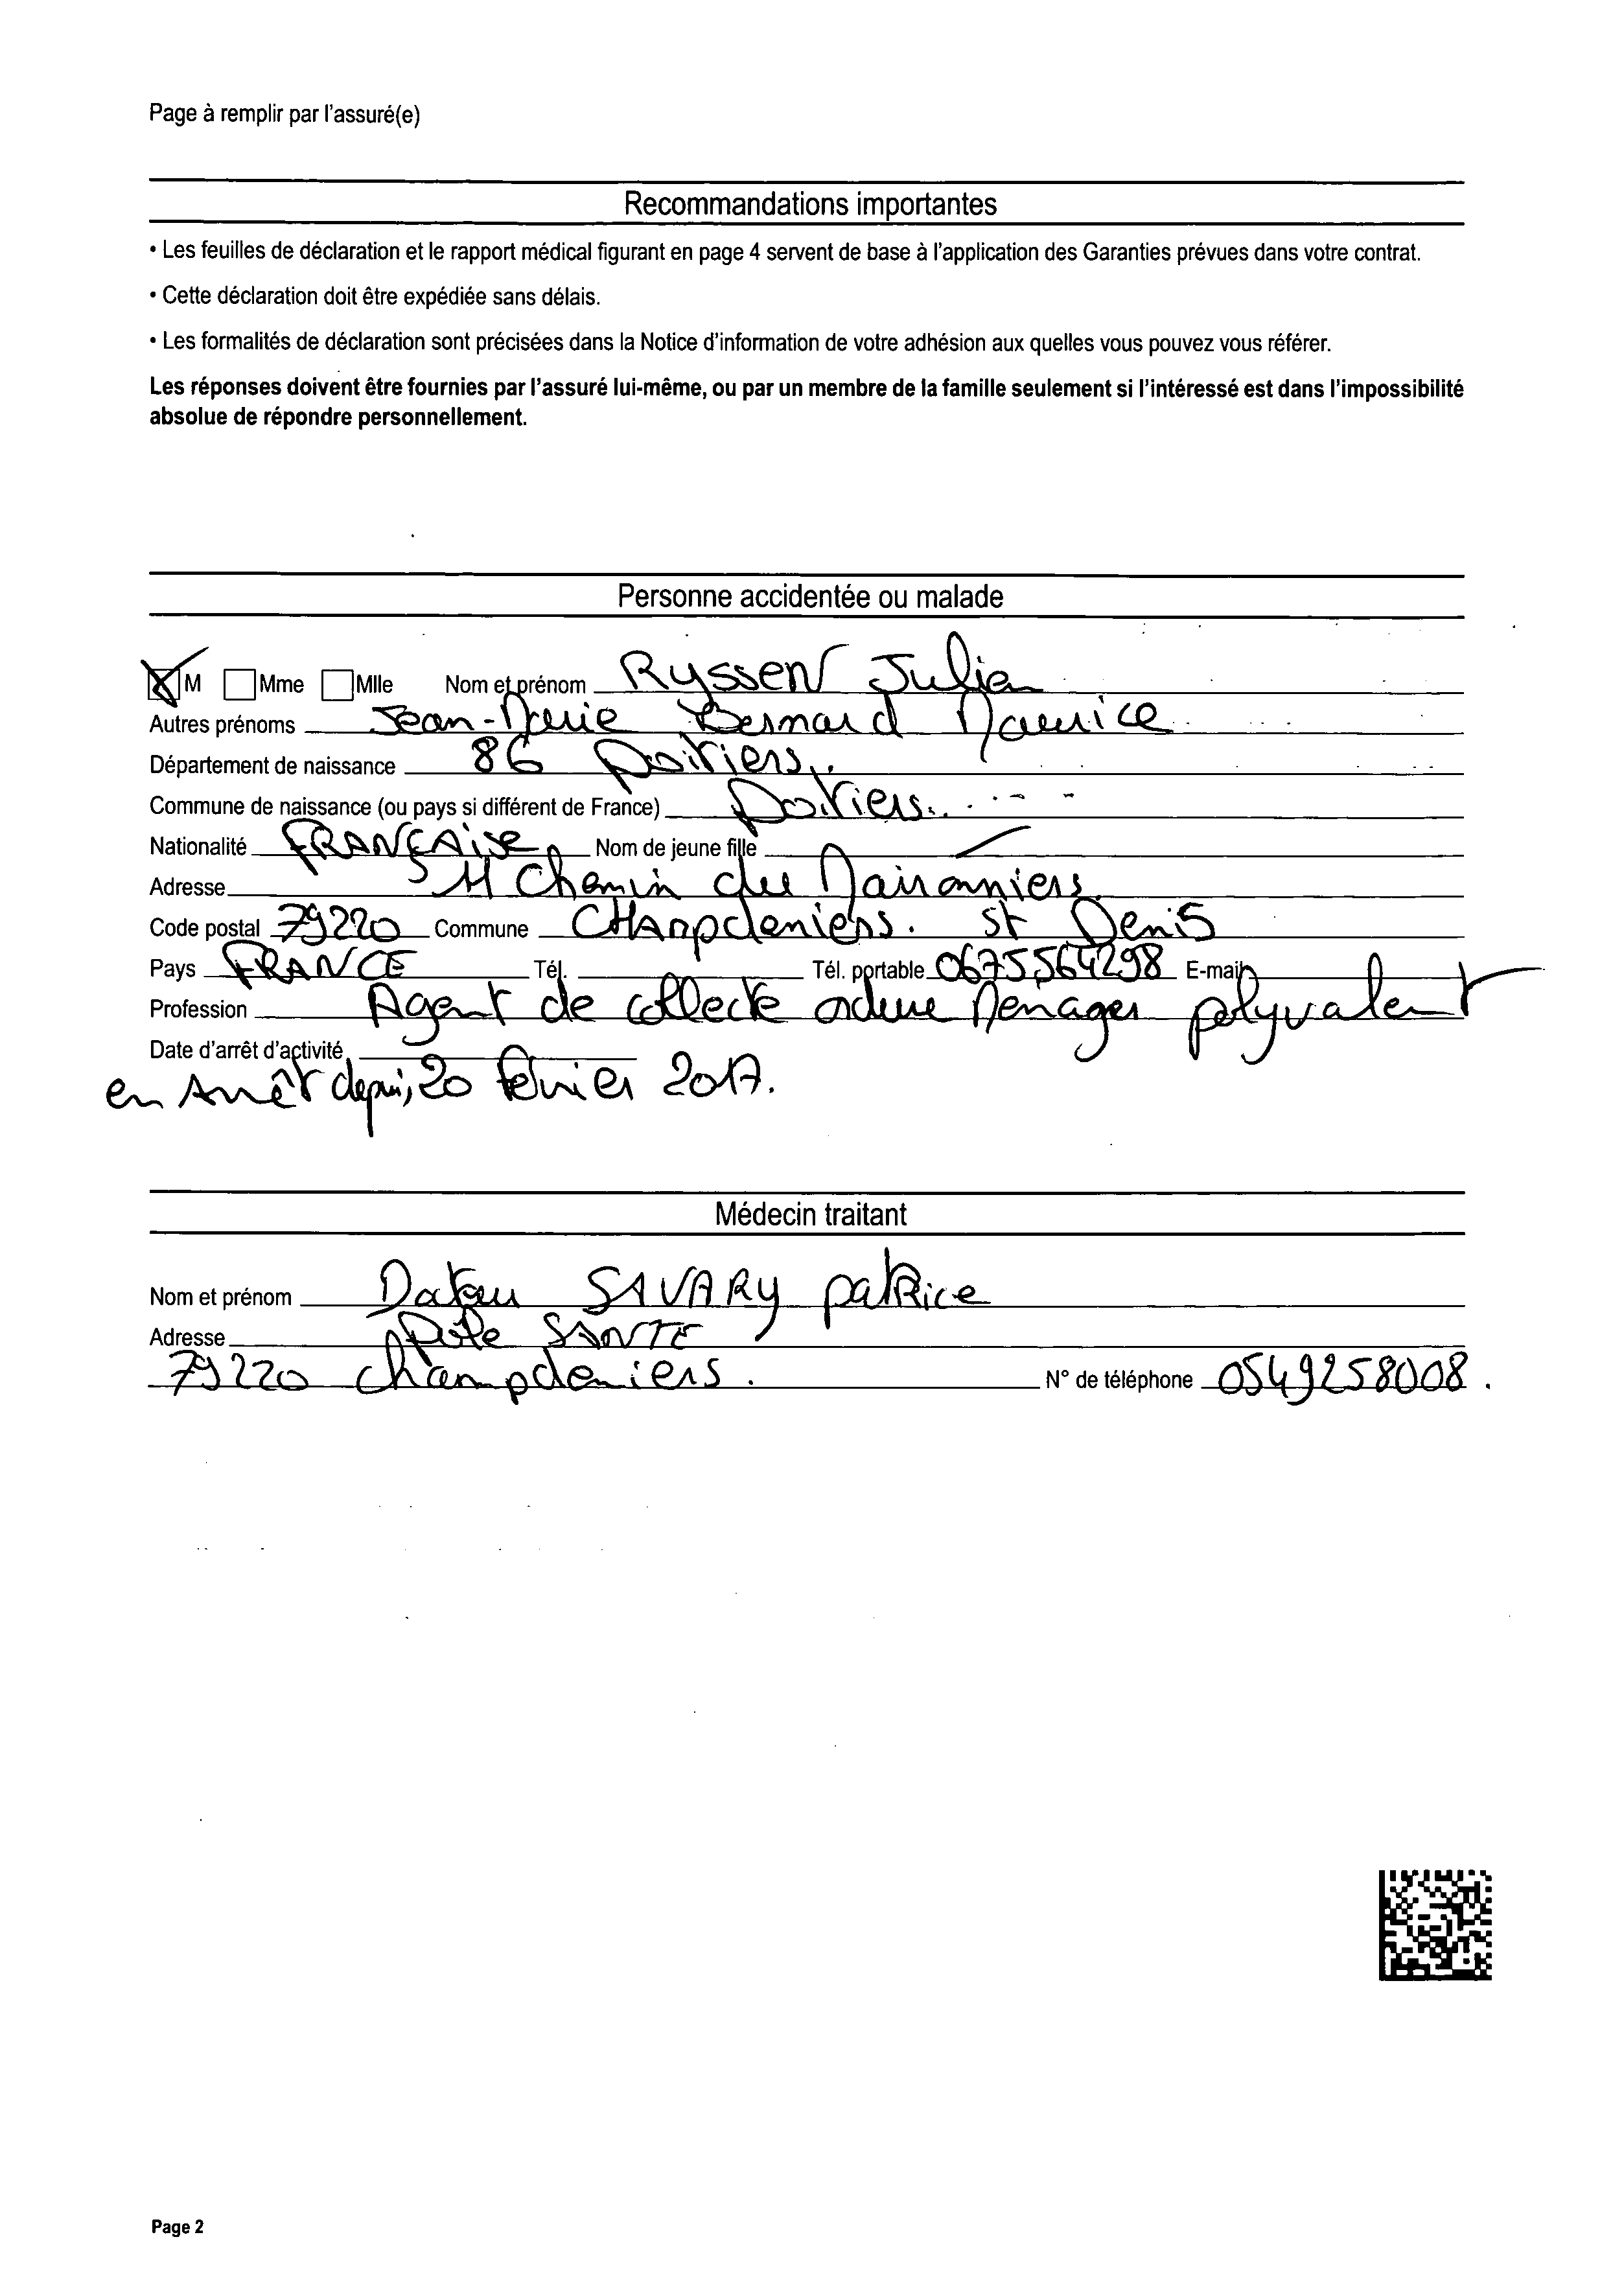 Page à remplir par l'assuré(e)
Recommandations importantes
• Les feuilles de déclaration et le rapport médical figurant en page 4 servent de base à l'application des Garanties prévues dans votre contrat.
• Cette déclaration doit être expédiée sans délais.
• Les formalités de déclaration sont précisées dans la Notice d'information de votre adhésion aux quelles vous pouvez vous référer.
Les réponses doivent être fournies par l'assuré lui-même, ou par un membre de la famille seulement si l'intéressé est dans l'impossibilité
absolue de répondre personnellement.
Personne accidentée ou malade
M Mme Mlle Nom et prénom Ryssen Julien
Autres prénoms Jean-Marie Bernard Maurice
Département de naissance 86 Poitiers
Commune de naissance (ou pays si différent de France) Poitiers
Nationalité FRANÇAise Nom de jeune fille
Adresse 11 Chemin du
Code postal 79220 Commune CHAmpdeniers. St Denis
Pays FRANCE Tél. Tél. portable 0675564298 E-mail
Profession Agent de collecte ordure Menager polyvalent
Date d'arrêt d'activité
en Arrêt depuis 20 février 2017.
Médecin traitant
Nom et prénom Docteur SAVARY patrice
Adresse Pôle SANTE
79220 champdeniers. N° de téléphone 0549258008.
Page 2